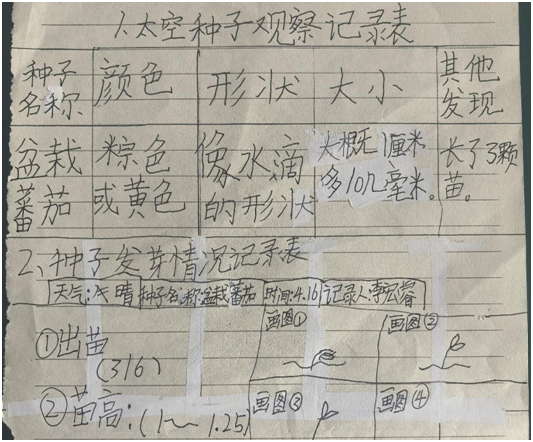 1.太空种子观察记录表
种子名称 颜色 形状 大小 其他发现
盆栽蕃茄 粽色或黄色 像水滴的形状 大概1厘米多10几毫米。 长了3颗苗。
2、种子发芽情况记录表
天气:晴 种子名称:盆栽蕃茄 时间:4.16 记录人:李宏睿
①出苗(316) 画图① 画图②
②苗高:(1～1.25) 画图③ 画图④